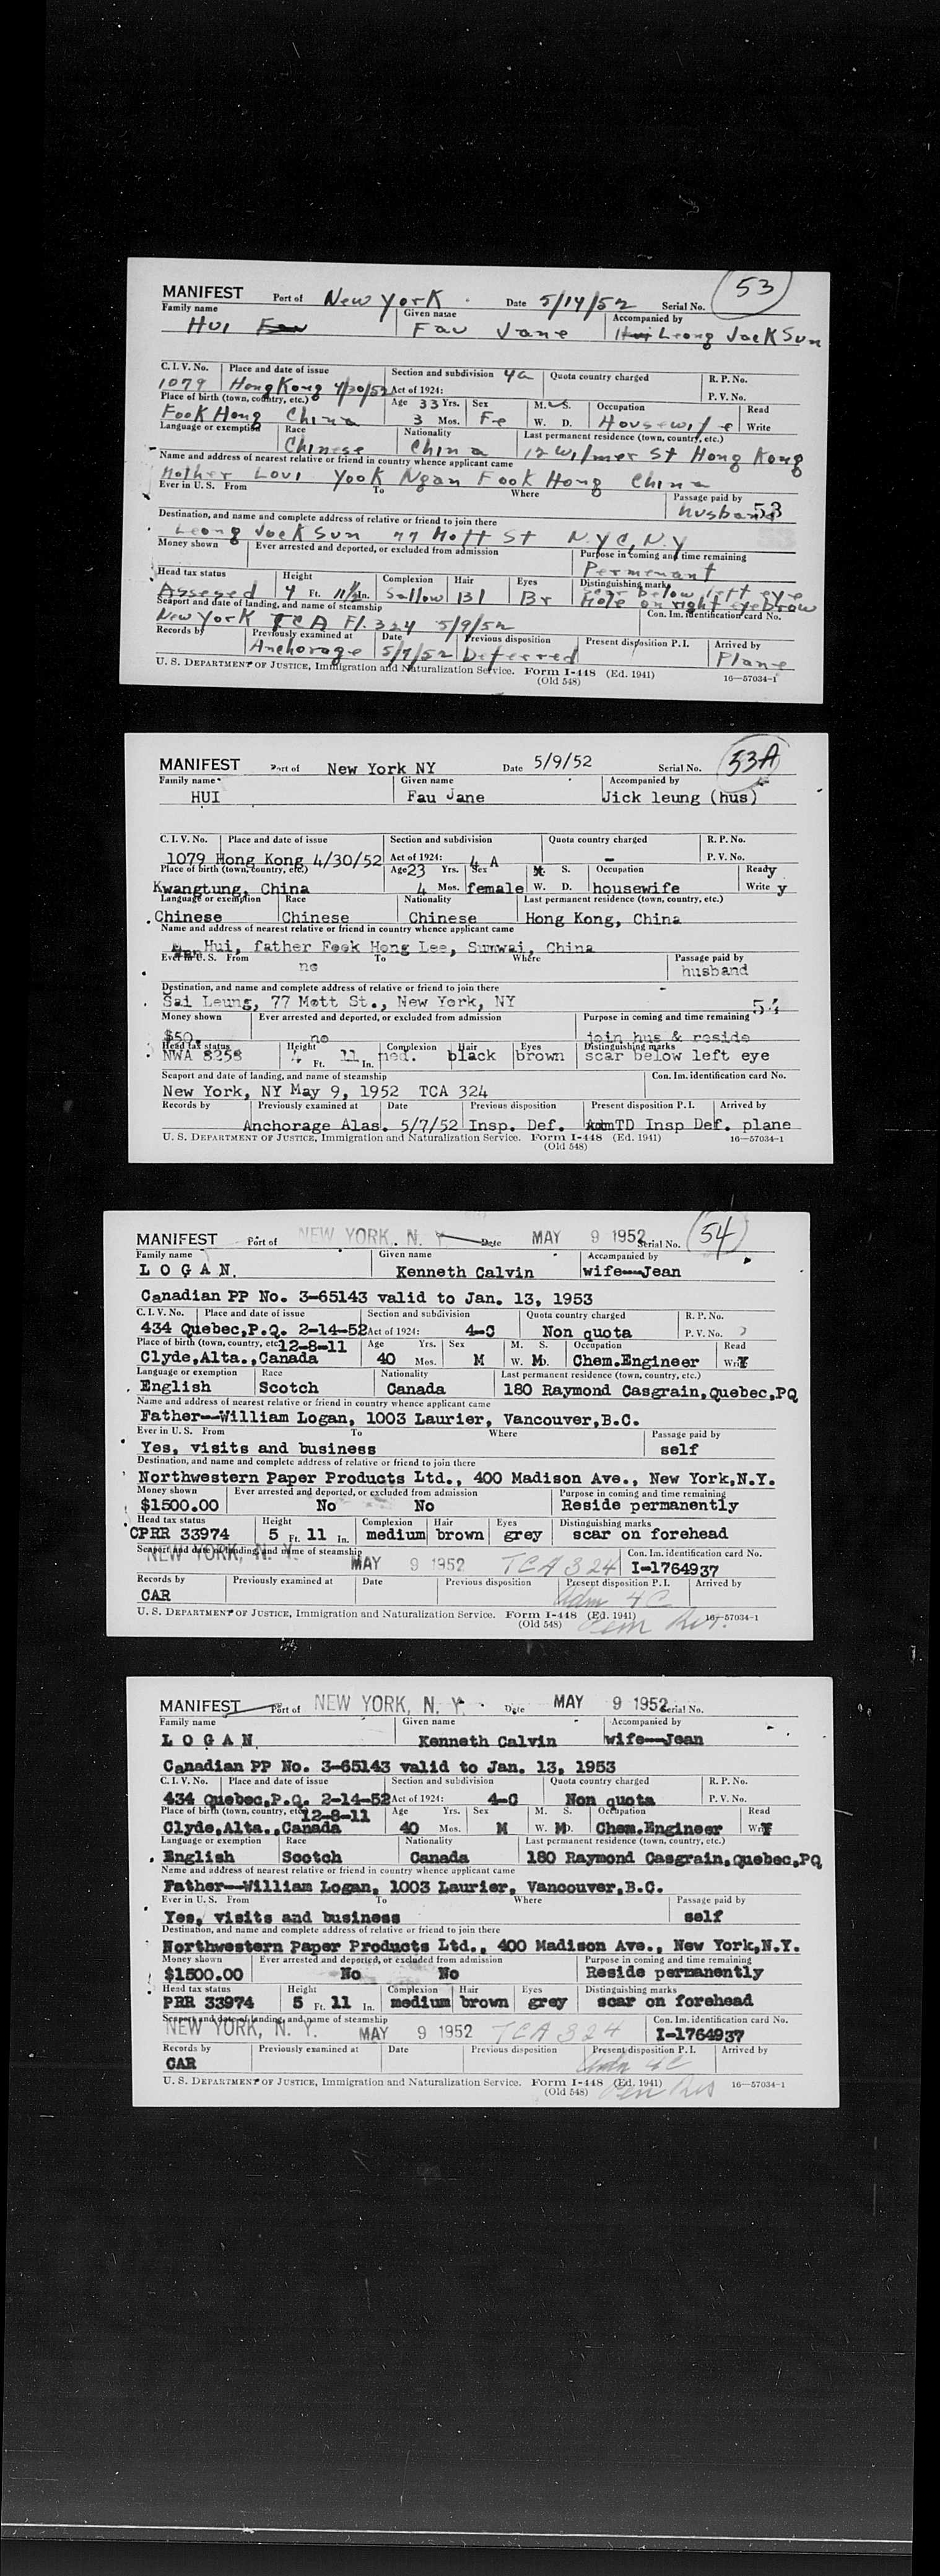 MANIFEST Port of New York Date 5/14/52 Serial No. 53
Family name Given name Accompanied by
Hui Fau Jane Leong Jack Sun
C. I. V. No. Place and date of issue Section and subdivision 4a Quota country charged R. P. No.
1079 Hong Kong 4/30/52 Act of 1924: P. V. No.
Place of birth (town, country, etc.) Age 33 Yrs. Sex M. S. Occupation Read
Fook Hong China 3 Mos. Fe W. D. Housewife Write
Language or exemption Race Nationality Last permanent residence (town, country, etc.)
Chinese China 12 Wilmer St Hong Kong
Name and address of nearest relative or friend in country whence applicant came
Mother Loui Yook Ngan Fook Hong China
Ever in U. S. From To Where Passage paid by
husband 53
Destination, and name and complete address of relative or friend to join there
Leong Jack Sun 77 Mott St N.Y.C, N.Y
Money shown Ever arrested and deported, or excluded from admission Purpose in coming and time remaining
Permenant
Head tax status Height Complexion Hair Eyes Distinguishing marks
Assesed 4 Ft. 11½ In. Sallow Bl Br Scar below left eye
Mole on right eyebrow
Seaport and date of landing, and name of steamship Con. Im. identification card No.
New York TCA Fl. 324 5/9/52
Records by Previously examined at Date Previous disposition Present disposition P. I. Arrived by
Anchorage 5/7/52 Deferred Plane
U. S. DEPARTMENT OF JUSTICE, Immigration and Naturalization Service. Form I-448 (Ed. 1941) 16—57034-1
(Old 548)
MANIFEST Port of New York NY Date 5/9/52 Serial No. 53A
Family name Given name Accompanied by
HUI Fau Jane Jick leung (hus)
C. I. V. No. Place and date of issue Section and subdivision Quota country charged R. P. No.
1079 Hong Kong 4/30/52 Act of 1924: 4 A - P. V. No.
Place of birth (town, country, etc.) Age 23 Yrs. Sex M. S. Occupation Read y
Kwangtung, China 4 Mos. female W. D. housewife Write y
Language or exemption Race Nationality Last permanent residence (town, country, etc.)
Chinese Chinese Chinese Hong Kong, China
Name and address of nearest relative or friend in country whence applicant came
Hui, father Fook Hong Lee, Sunwai, China
Ever in U. S. From To Where Passage paid by
no husband
Destination, and name and complete address of relative or friend to join there
Sai Leung, 77 Mott St., New York, NY 54
Money shown Ever arrested and deported, or excluded from admission Purpose in coming and time remaining
$50. no join hus & reside
Head tax status Height Complexion Hair Eyes Distinguishing marks
NWA 8258 4 Ft. 11 In. med. black brown scar below left eye
Seaport and date of landing, and name of steamship Con. Im. identification card No.
New York, NY May 9, 1952 TCA 324
Records by Previously examined at Date Previous disposition Present disposition P. I. Arrived by
Anchorage Alas. 5/7/52 Insp. Def. TD Insp Def. plane
U. S. DEPARTMENT OF JUSTICE, Immigration and Naturalization Service. Form I-448 (Ed. 1941) 16—57034-1
(Old 548)
MANIFEST Port of NEW YORK, N. Y. Date MAY 9 1952 Serial No. 54
Family name Given name Accompanied by
LOGAN. Kenneth Calvin wife--Jean
Canadian PP No. 3-65143 valid to Jan. 13, 1953
C. I. V. No. Place and date of issue Section and subdivision Quota country charged R. P. No.
434 Quebec,P.Q. 2-14-52 Act of 1924: 4-C Non quota P. V. No.
Place of birth (town, country, etc.) 12-8-11 Age Yrs. Sex M. S. Occupation Read
Clyde,Alta.,Canada 40 Mos. M W. D. Chem.Engineer Write
Language or exemption Race Nationality Last permanent residence (town, country, etc.)
English Scotch Canada 180 Raymond Casgrain,Quebec,PQ
Name and address of nearest relative or friend in country whence applicant came
Father--William Logan, 1003 Laurier, Vancouver,B.C.
Ever in U. S. From To Where Passage paid by
Yes, visits and business self
Destination, and name and complete address of relative or friend to join there
Northwestern Paper Products Ltd., 400 Madison Ave., New York,N.Y.
Money shown Ever arrested and deported, or excluded from admission Purpose in coming and time remaining
$1500.00 No No Reside permanently
Head tax status Height Complexion Hair Eyes Distinguishing marks
CPRR 33974 5 Ft. 11 In. medium brown grey scar on forehead
Seaport and date of landing, and name of steamship Con. Im. identification card No.
NEW YORK, N. Y. MAY 9 1952 TCA 324 I-1764937
Records by Previously examined at Date Previous disposition Present disposition P. I. Arrived by
CAR Adm 4C
U. S. DEPARTMENT OF JUSTICE, Immigration and Naturalization Service. Form I-448 (Ed. 1941) 16—57034-1
(Old 548)
MANIFEST Port of NEW YORK, N. Y. Date MAY 9 1952 Serial No.
Family name Given name Accompanied by
LOGAN Kenneth Calvin wife--Jean
Canadian PP No. 3-65143 valid to Jan. 13, 1953
C. I. V. No. Place and date of issue Section and subdivision Quota country charged R. P. No.
434 Quebec,P.Q. 2-14-52 Act of 1924: 4-C Non quota P. V. No.
Place of birth (town, country, etc.) 12-8-11 Age Yrs. Sex M. S. Occupation Read
Clyde,Alta.,Canada 40 Mos. M W. D. Chem.Engineer Write
Language or exemption Race Nationality Last permanent residence (town, country, etc.)
English Scotch Canada 180 Raymond Casgrain,Quebec,PQ
Name and address of nearest relative or friend in country whence applicant came
Father--William Logan, 1003 Laurier, Vancouver,B.C.
Ever in U. S. From To Where Passage paid by
Yes, visits and business self
Destination, and name and complete address of relative or friend to join there
Northwestern Paper Products Ltd., 400 Madison Ave., New York,N.Y.
Money shown Ever arrested and deported, or excluded from admission Purpose in coming and time remaining
$1500.00 No No Reside permanently
Head tax status Height Complexion Hair Eyes Distinguishing marks
PRR 33974 5 Ft. 11 In. medium brown grey scar on forehead
Seaport and date of landing, and name of steamship Con. Im. identification card No.
NEW YORK, N. Y. MAY 9 1952 TCA 324 I-1764937
Records by Previously examined at Date Previous disposition Present disposition P. I. Arrived by
CAR Adm 4C
U. S. DEPARTMENT OF JUSTICE, Immigration and Naturalization Service. Form I-448 (Ed. 1941) 16—57034-1
(Old 548)